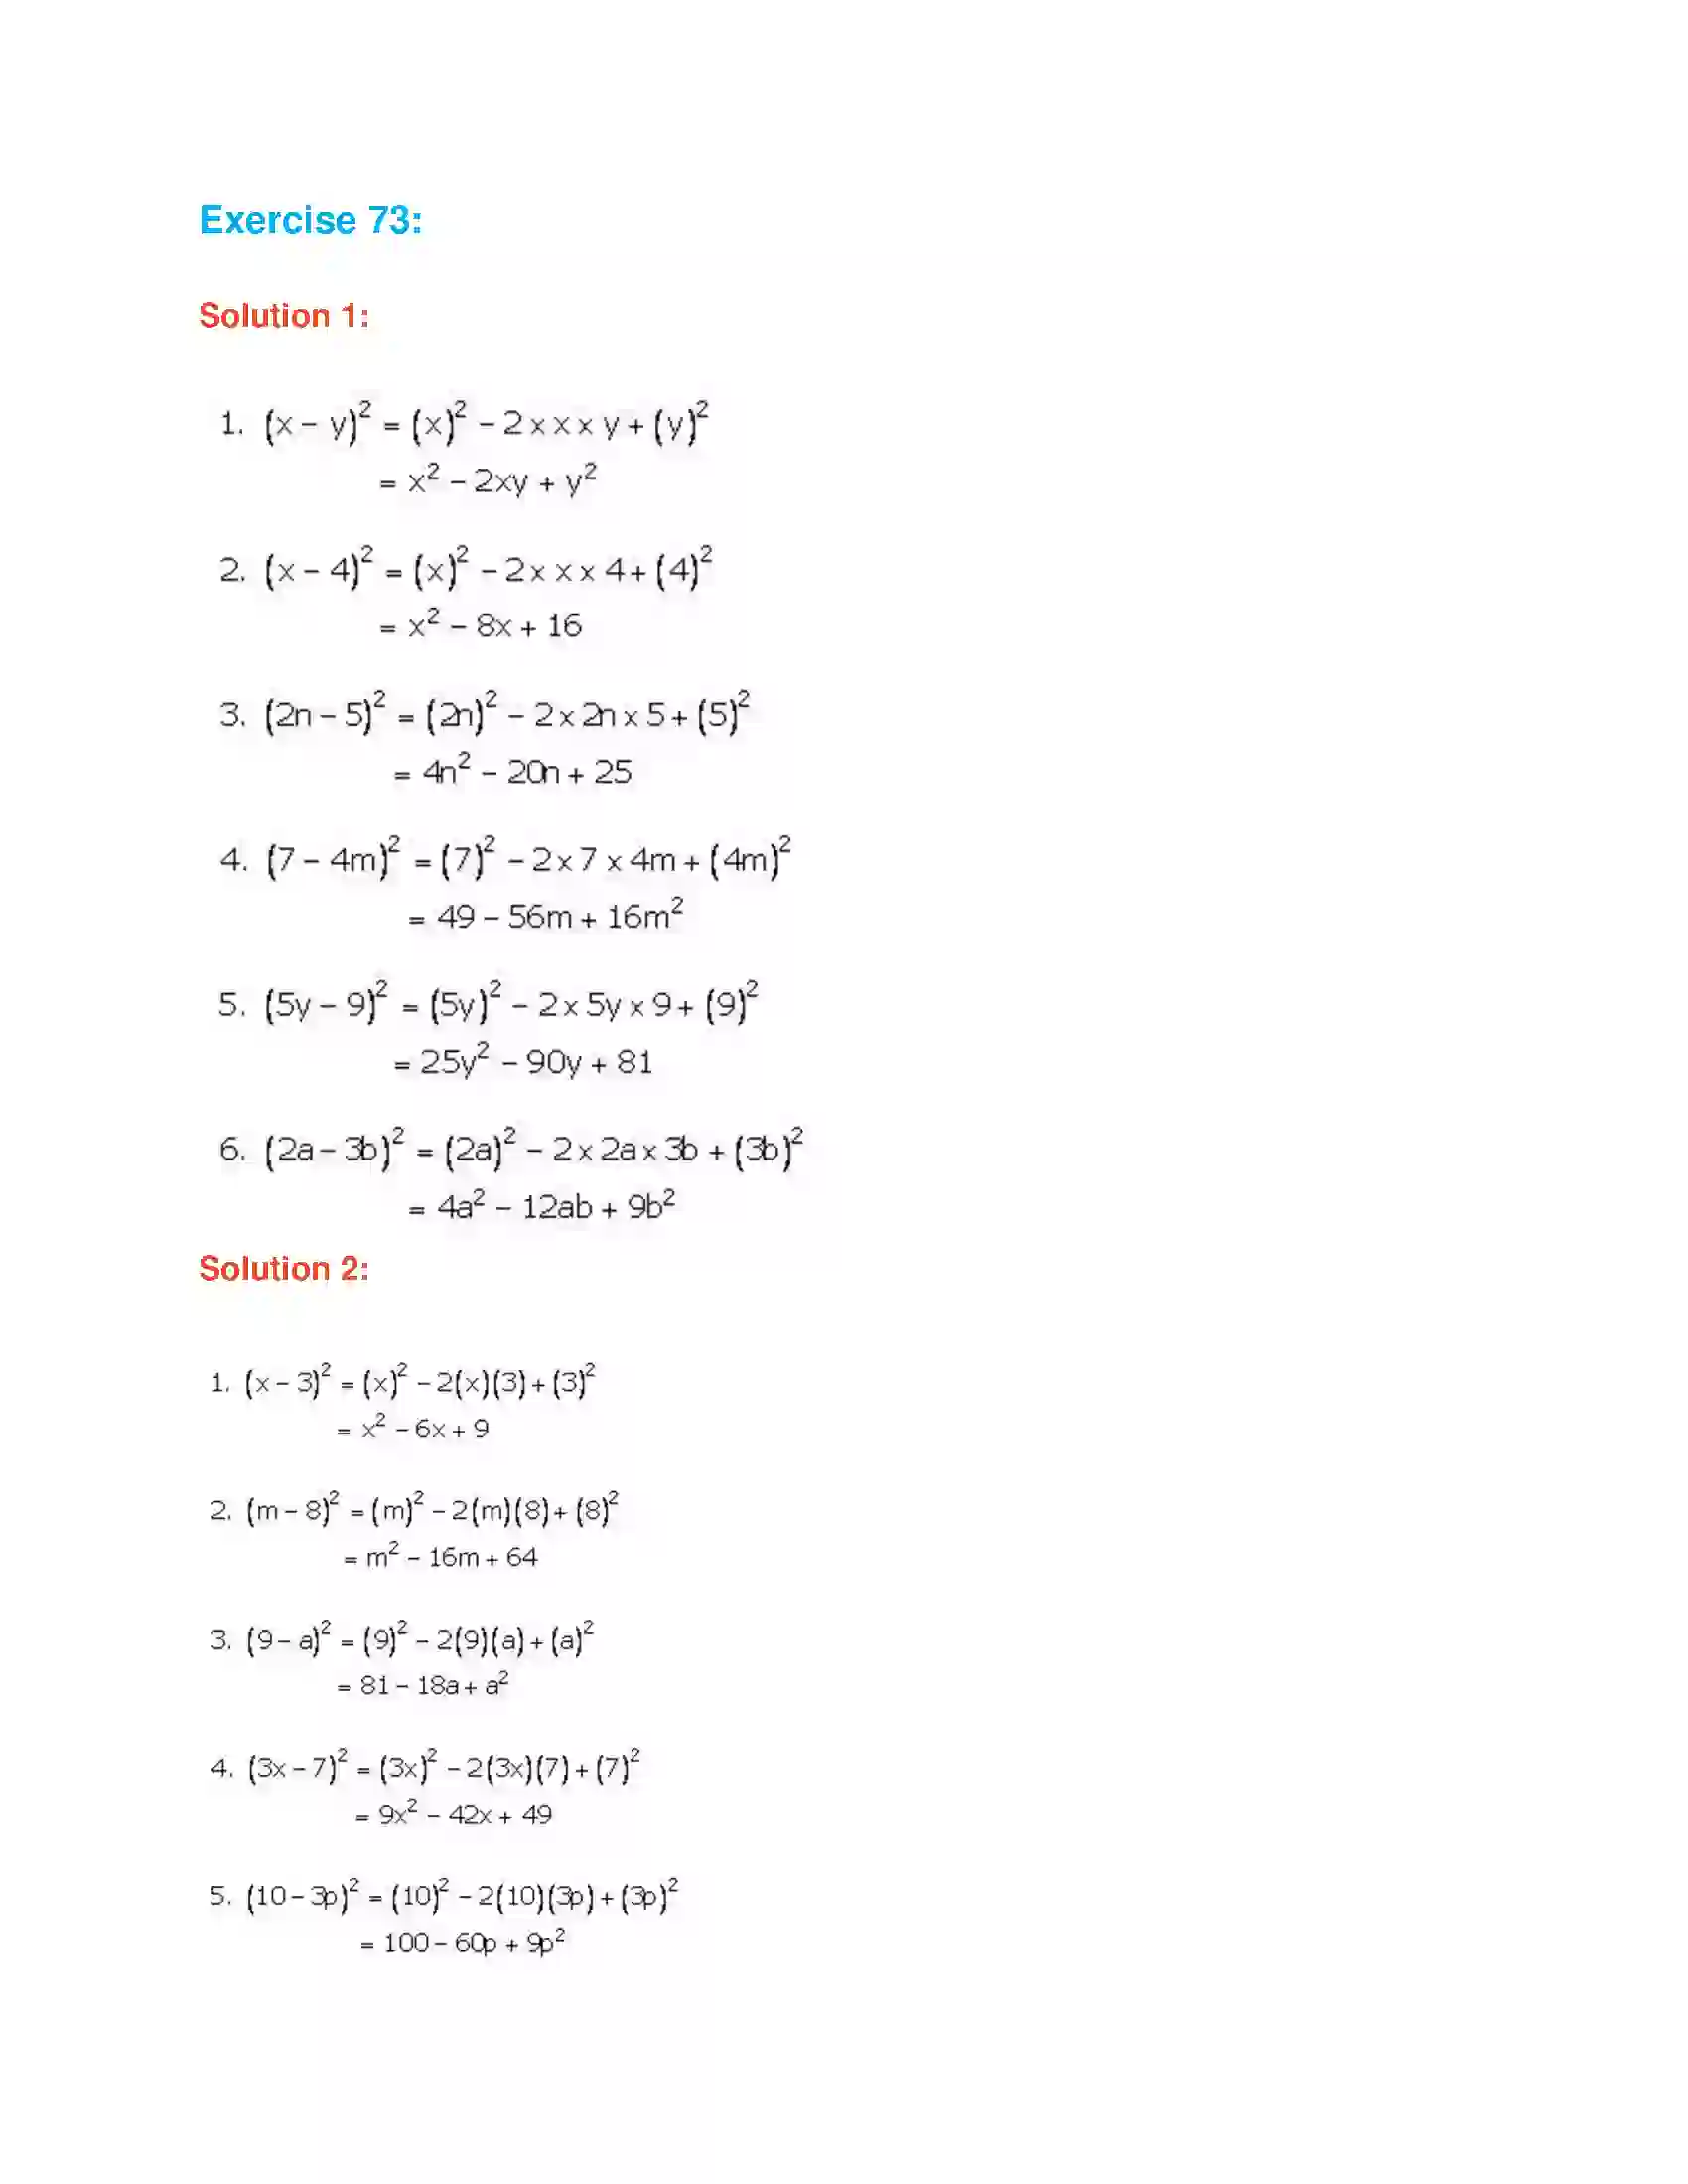 Exercise 73:
Solution 1:
1. (x − y)² = (x)² − 2 × x × y + (y)²
= x² − 2xy + y²
2. (x − 4)² = (x)² − 2 × x × 4 + (4)²
= x² − 8x + 16
3. (2n − 5)² = (2n)² − 2 × 2n × 5 + (5)²
= 4n² − 20n + 25
4. (7 − 4m)² = (7)² − 2 × 7 × 4m + (4m)²
= 49 − 56m + 16m²
5. (5y − 9)² = (5y)² − 2 × 5y × 9 + (9)²
= 25y² − 90y + 81
6. (2a − 3b)² = (2a)² − 2 × 2a × 3b + (3b)²
= 4a² − 12ab + 9b²
Solution 2:
1. (x − 3)² = (x)² − 2(x)(3) + (3)²
= x² − 6x + 9
2. (m − 8)² = (m)² − 2(m)(8) + (8)²
= m² − 16m + 64
3. (9 − a)² = (9)² − 2(9)(a) + (a)²
= 81 − 18a + a²
4. (3x − 7)² = (3x)² − 2(3x)(7) + (7)²
= 9x² − 42x + 49
5. (10 − 3p)² = (10)² − 2(10)(3p) + (3p)²
= 100 − 60p + 9p²